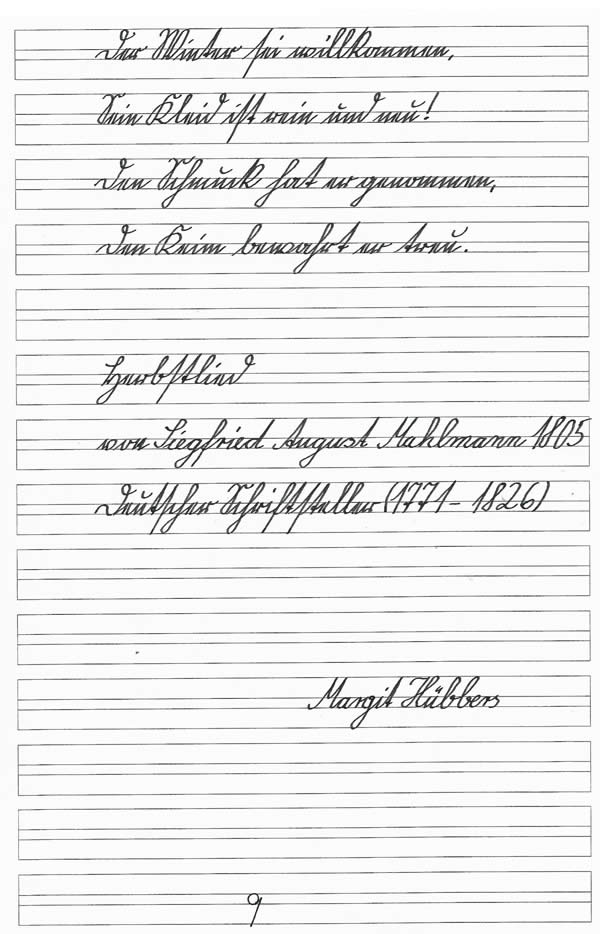 Der Winter sei willkommen,
Sein Kleid ist rein und neu!
Den Schmuck hat er genommen,
Den Keim bewahrt er treu.
Herbstlied
von Siegfried August Mahlmann 1805
Deutscher Schriftsteller (1771 - 1826)
Margit Hübbers
9